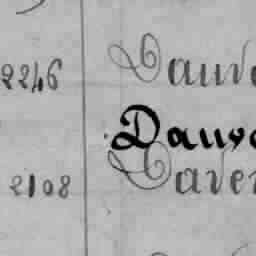 2246 Dauv
Dauv
2108 Daver